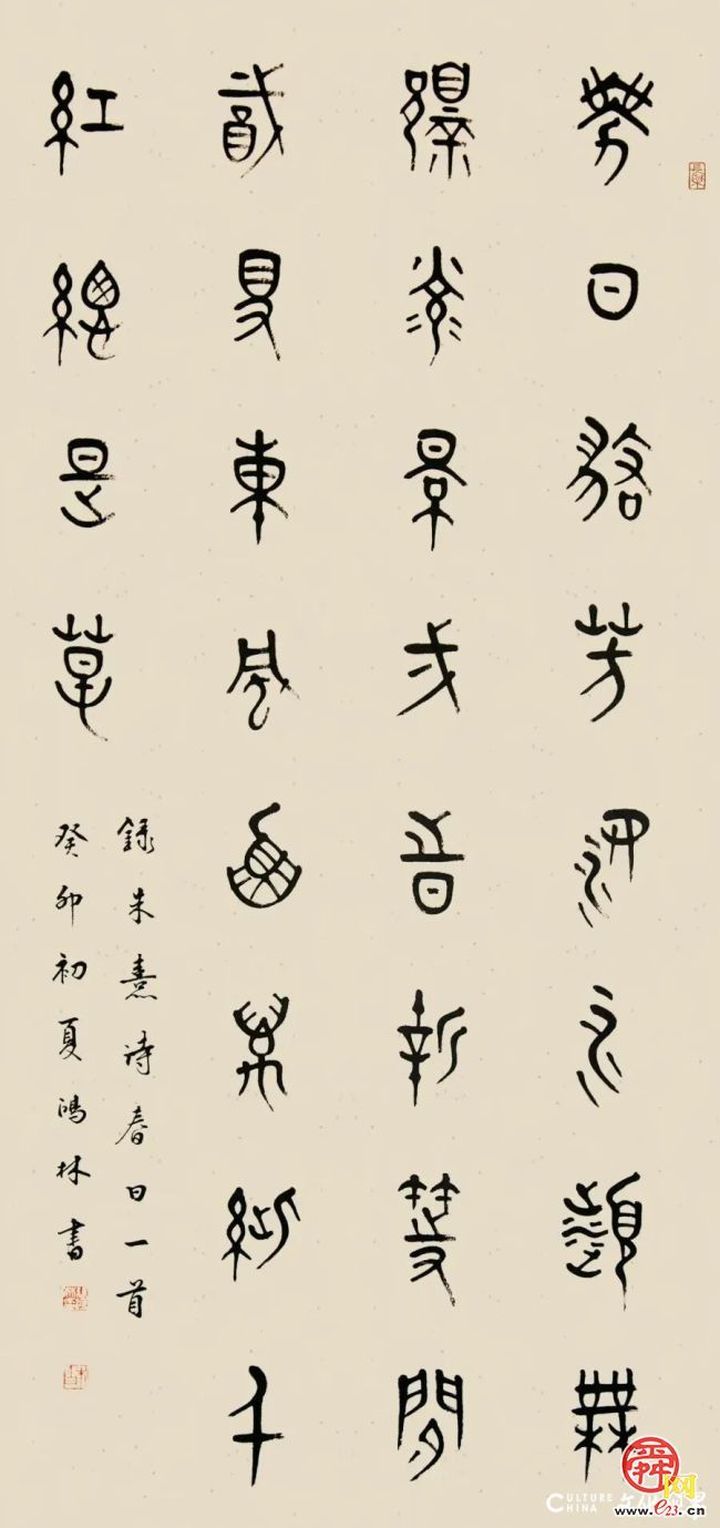 勝日尋芳泗水濱無
邊光景一時新等閒
識得東風面萬紫千
紅總是春
錄朱熹詩春日一首
癸卯初夏鴻林書
舜网
www.e23.cn
CULTURE
CHINA